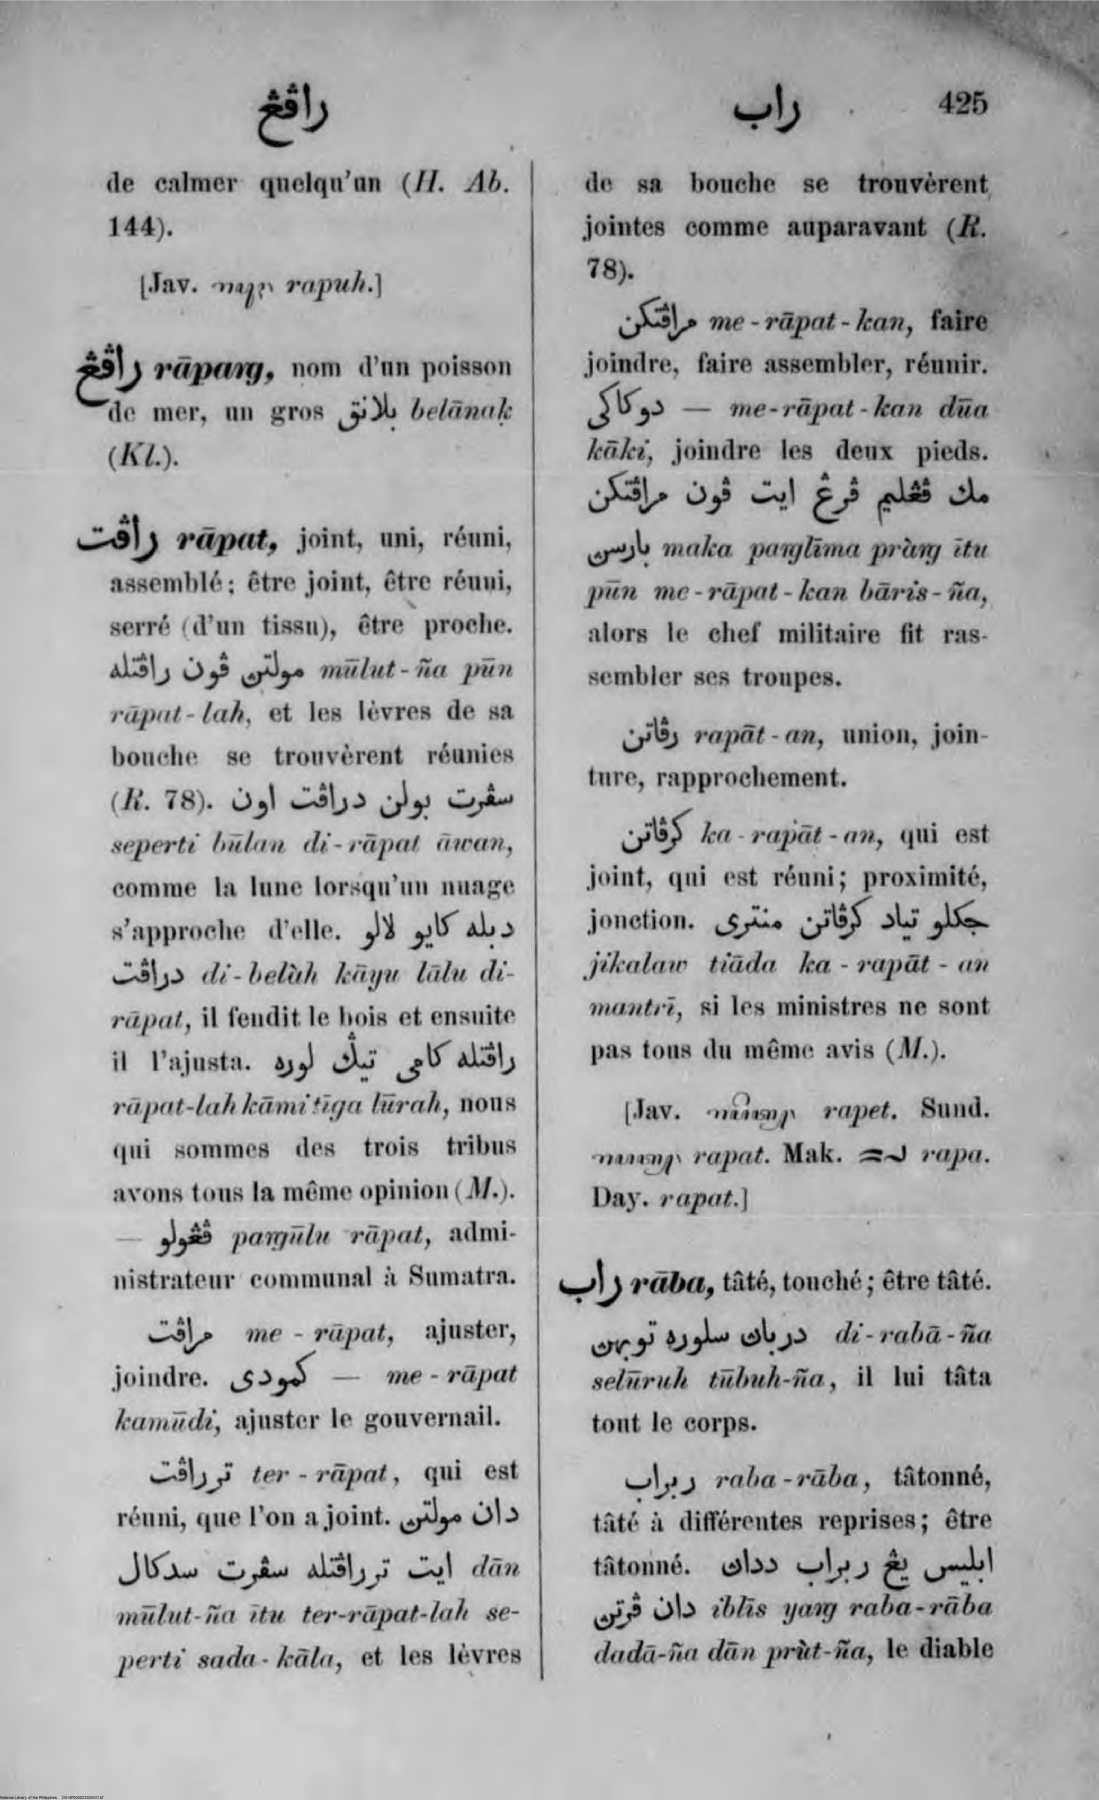 راڤڠ
راب
425
de calmer quelqu'un (H. Ab.
144).
[Jav. rapuh.]
راڤڠ rāparg, nom d'un poisson
de mer, un gros بلانق belānaḳ
(Kl.).
راڤت rāpat, joint, uni, réuni,
assemblé; être joint, être réuni,
serré (d'un tissu), être proche.
مولتن ڤون راڤتله mūlut-ña pūn
rāpat-lah, et les lèvres de sa
bouche se trouvèrent réunies
(R. 78). سڤرت بولن دراڤت اون
seperti būlan di-rāpat āwan,
comme la lune lorsqu'un nuage
s'approche d'elle. دبله كايو لالو
دراڤت di-belàh kāyu lālu di-
rāpat, il fendit le bois et ensuite
il l'ajusta. راڤتله كامي تيڬ لوره
rāpat-lah kāmi tīga lūrah, nous
qui sommes des trois tribus
avons tous la même opinion (M.).
— ڤڠولو pargūlu rāpat, admi-
nistrateur communal à Sumatra.
مراڤت me-rāpat, ajuster,
joindre. كمودي — me-rāpat
kamūdi, ajuster le gouvernail.
ترراڤت ter-rāpat, qui est
réuni, que l'on a joint. دان مولتن
ايت ترراڤتله سڤرت سدكال dān
mūlut-ña ītu ter-rāpat-lah se-
perti sada-kāla, et les lèvres
de sa bouche se trouvèrent
jointes comme auparavant (R.
78).
مراڤتكن me-rāpat-kan, faire
joindre, faire assembler, réunir.
دوكاكي — me-rāpat-kan dūa
kāki, joindre les deux pieds.
مك ڤڠليم ڤرڠ ايت ڤون مراڤتكن
بارسن maka parglīma pràrg ītu
pūn me-rāpat-kan bāris-ña,
alors le chef militaire fit ras-
sembler ses troupes.
رڤاتن rapāt-an, union, join-
ture, rapprochement.
كرڤاتن ka-rapāt-an, qui est
joint, qui est réuni; proximité,
jonction. جكلو تياد كرڤاتن منتري
jikalaw tiāda ka-rapāt-an
mantrī, si les ministres ne sont
pas tous du même avis (M.).
[Jav. rapet. Sund.
rapat. Mak. rapa.
Day. rapat.]
راب rāba, tâté, touché; être tâté.
دربان سلوره توبهن di-rabā-ña
selūruh tūbuh-ña, il lui tâta
tout le corps.
ربراب raba-rāba, tâtonné,
tâté à différentes reprises; être
tâtonné. ابليس يڠ ربراب ددان
دان ڤرتن iblīs yarg raba-rāba
dadā-ña dān prùt-ña, le diable